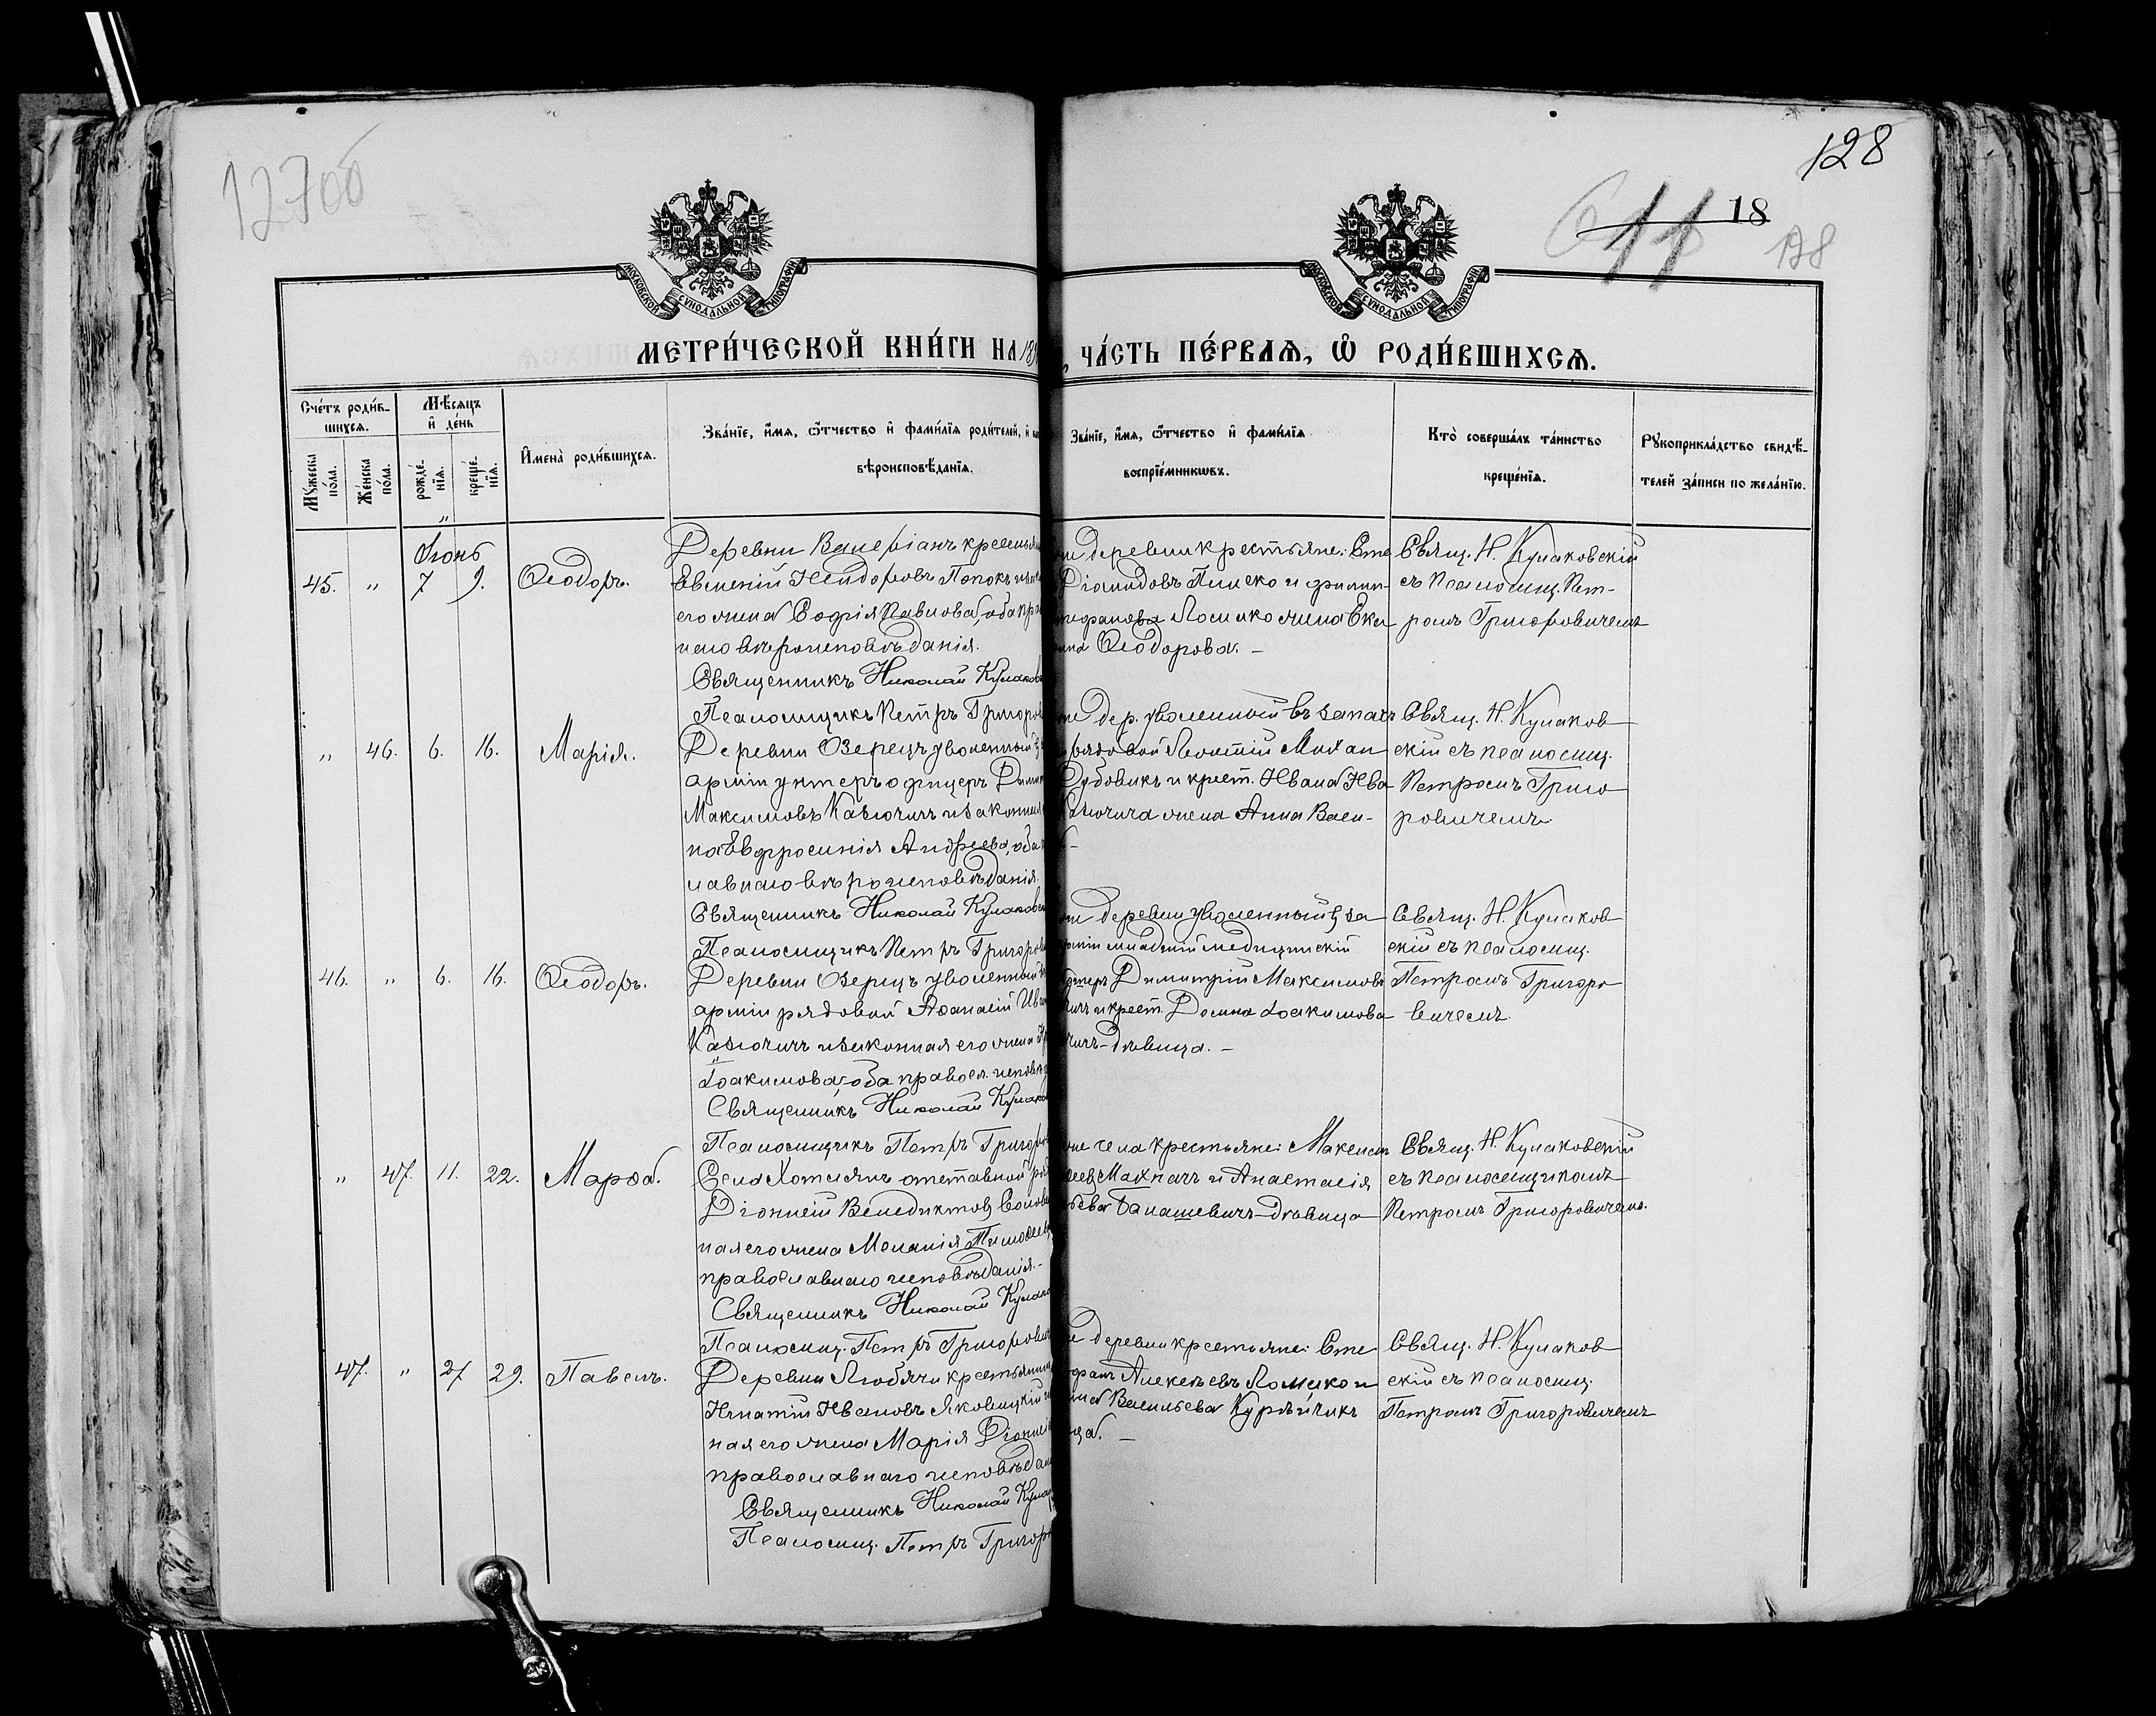 127об
128
18
128
МОСКОВСКОЙ СѴНОДАЛЬНОЙ ТИПОГРАФІИ
МОСКОВСКОЙ СѴНОДАЛЬНОЙ ТИПОГРАФІИ
МЕТРИ́ЧЕСКОЙ КНИ́ГИ НА 189
, ЧА́СТЬ ПЕ́РВАЯ, Ѡ҆ РОДИ́ВШИХСЯ.
Сче́тъ роди́в-
шихся.
Му́жеска по́ла.
Же́нска по́ла.
Мѣ́сяцъ и҆ де́нь
рожде́-
нїя.
креще́-
нїя.
И҆мена̀ роди́вшихся.
Зва́нїе, и҆́мя, ѻ҆́тчество и҆ фами́лїя роди́телей, и҆
вѣроисповѣ́данїя.
Зва́нїе, и҆́мя, ѻ҆́тчество и҆ фами́лїя
воспрїе́мникѡвъ.
Кто̀ соверша́лъ та́инство
креще́нїя.
Рꙋкоприкла́дство свидѣ́-
телей за́писи по жела́нїю.
Іюнь
45. „ 7 9. Ѳеодоръ.
Деревни Валеріанъ крестьян
Евменій Исидоровъ Попокъ
его жена Софія Павлова, оба пр
наго вѣроисповѣданія.
Священникъ Николай Кулаков
Псаломщикъ Петръ Григоров
деревни крестьяне: Сте
Діомидовъ Пинско и филип
тефанова Лосико жена Ека
ина Ѳеодорова. —
Свящ. Н. Кулаковскій
съ псаломщ. Пет-
ромъ Григоровичемъ
„ 46. 6. 16. Марія.
Деревни Озерецъ уволенный
арміи унтеръ офицеръ Дими
Максимовъ Казючичъ и законная
на Евфросинія Андреева, оба
лавнаго вѣроисповѣданія.
Священникъ Николай Кулаковск
Псаломщикъ Петръ Григоров
дер. уволенный въ запасъ
рядовой Леонтій Михаи
Дубовикъ и крест. Ивана Ива
Казючича жена Анна Васи-
Свящ. Н. Кулаков
скій съ псаломщ.
Петромъ Григо
ровичемъ
46. „ 6. 16. Ѳеодоръ.
Деревни Озерцъ уволенный
арміи рядовой Аѳанасій Ива
Казючичъ и законная его жена
Іоакимова, оба правосл. исповѣд
Священникъ Николай Кулаков
Псаломщикъ Петръ Григоров
деревни уволенный въ за
арміи младшій медицинскій
Димитрій Максимовъ
и крест. Домна Іоакимова
чичъ-дѣвица. —
Свящ. Н. Кулаков
скій съ псаломщ.
Петромъ Григоро
вичемъ
„ 47. 11. 22. Марѳа.
Села Хотлянъ отставной ряд
Діонисій Венедиктовъ
ная его жена Меланія Тимоѳеев
православнаго исповѣданія.-
Священникъ Николай Кулако
Псаломщ. Петръ Григорович
села крестьяне: Максим
Махначъ и Анастасія
ьева Банашевичъ-дѣвица
Свящ. Н. Кулаковскій
съ псаломщикомъ
Петромъ Григоровичемъ.
47. „ 27 29. Павелъ.
Деревни Любячи крестьянин
Игнатій Ивановъ Яковицкій и
ная его жена Марія Діонисі
православнаго исповѣдан
Священникъ Николай Кула
Псаломщ. Петръ Григор
деревни крестьяне: Сте
фанъ Алексѣевъ Ломако и
Васильева Курейчикъ
ца. —
Свящ. Н. Кулаков
скій съ псаломщ.
Петромъ Григоровичемъ